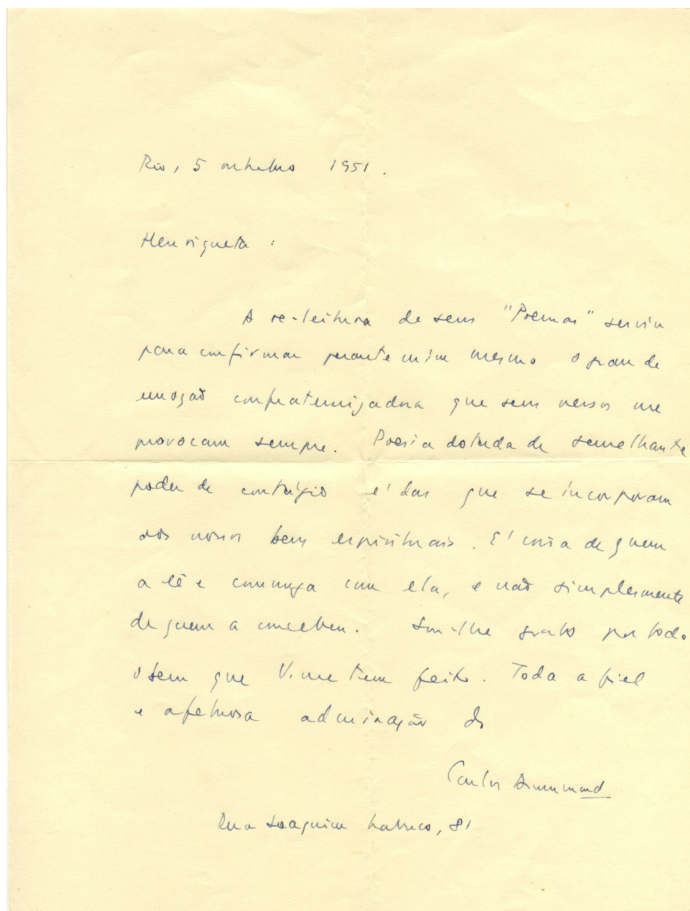 Rio, 5 outubro 1951.
Henriqueta:
A re-leitura de seus "Poemas" serviu
para confirmar perante mim mesmo o grau de
emoção confraternizadora que seus versos me
provocam sempre. Poesia dotada de semelhante
poder de contágio é das que se incorporam
aos nossos bens espirituais. É coisa de quem
a lê e comunga com ela, e não simplesmente
de quem a concebeu. Sou-lhe grato por todo
o bem que V. me tem feito. Toda a fiel
e afetuosa admiração do
Carlos Drummond
Rua Joaquim Nabuco, 81